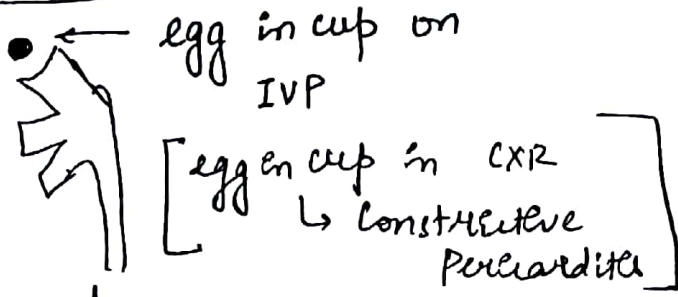 egg in cup on
IVP
[egg in cup in CXR
↳ Constrictive
Pericarditis]